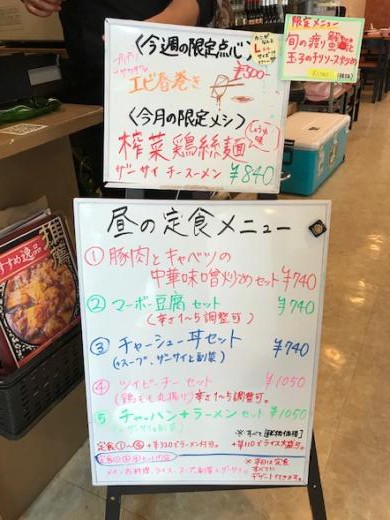 〈今週の限定点心〉
エビ春巻き
¥300
〈今月の限定メシ〉
搾菜鶏絲麺
ザーサイ チースーメン ¥840
限定メニュー
旬の渡り蟹と
玉子のチリソース炒め
昼の定食メニュー
① 豚肉とキャベツの
中華味噌炒めセット ¥740
② マーボー豆腐 セット ¥740
(辛さ1~5調整可)
③ チャーシュー丼セット ¥740
(+スープ、ザーサイと副菜)
④ ツイピーチー セット ¥1050
(鶏もも丸揚げ) 辛さ1~5調整可。
⑤ チャーハン+ラーメン セット ¥1050
※すべて【税抜価格】
定食①~④ +¥320でラーメン付可。
+¥110でライス大盛可。
※平日は定食
すべてに
デザート付きます。
すめ逸品